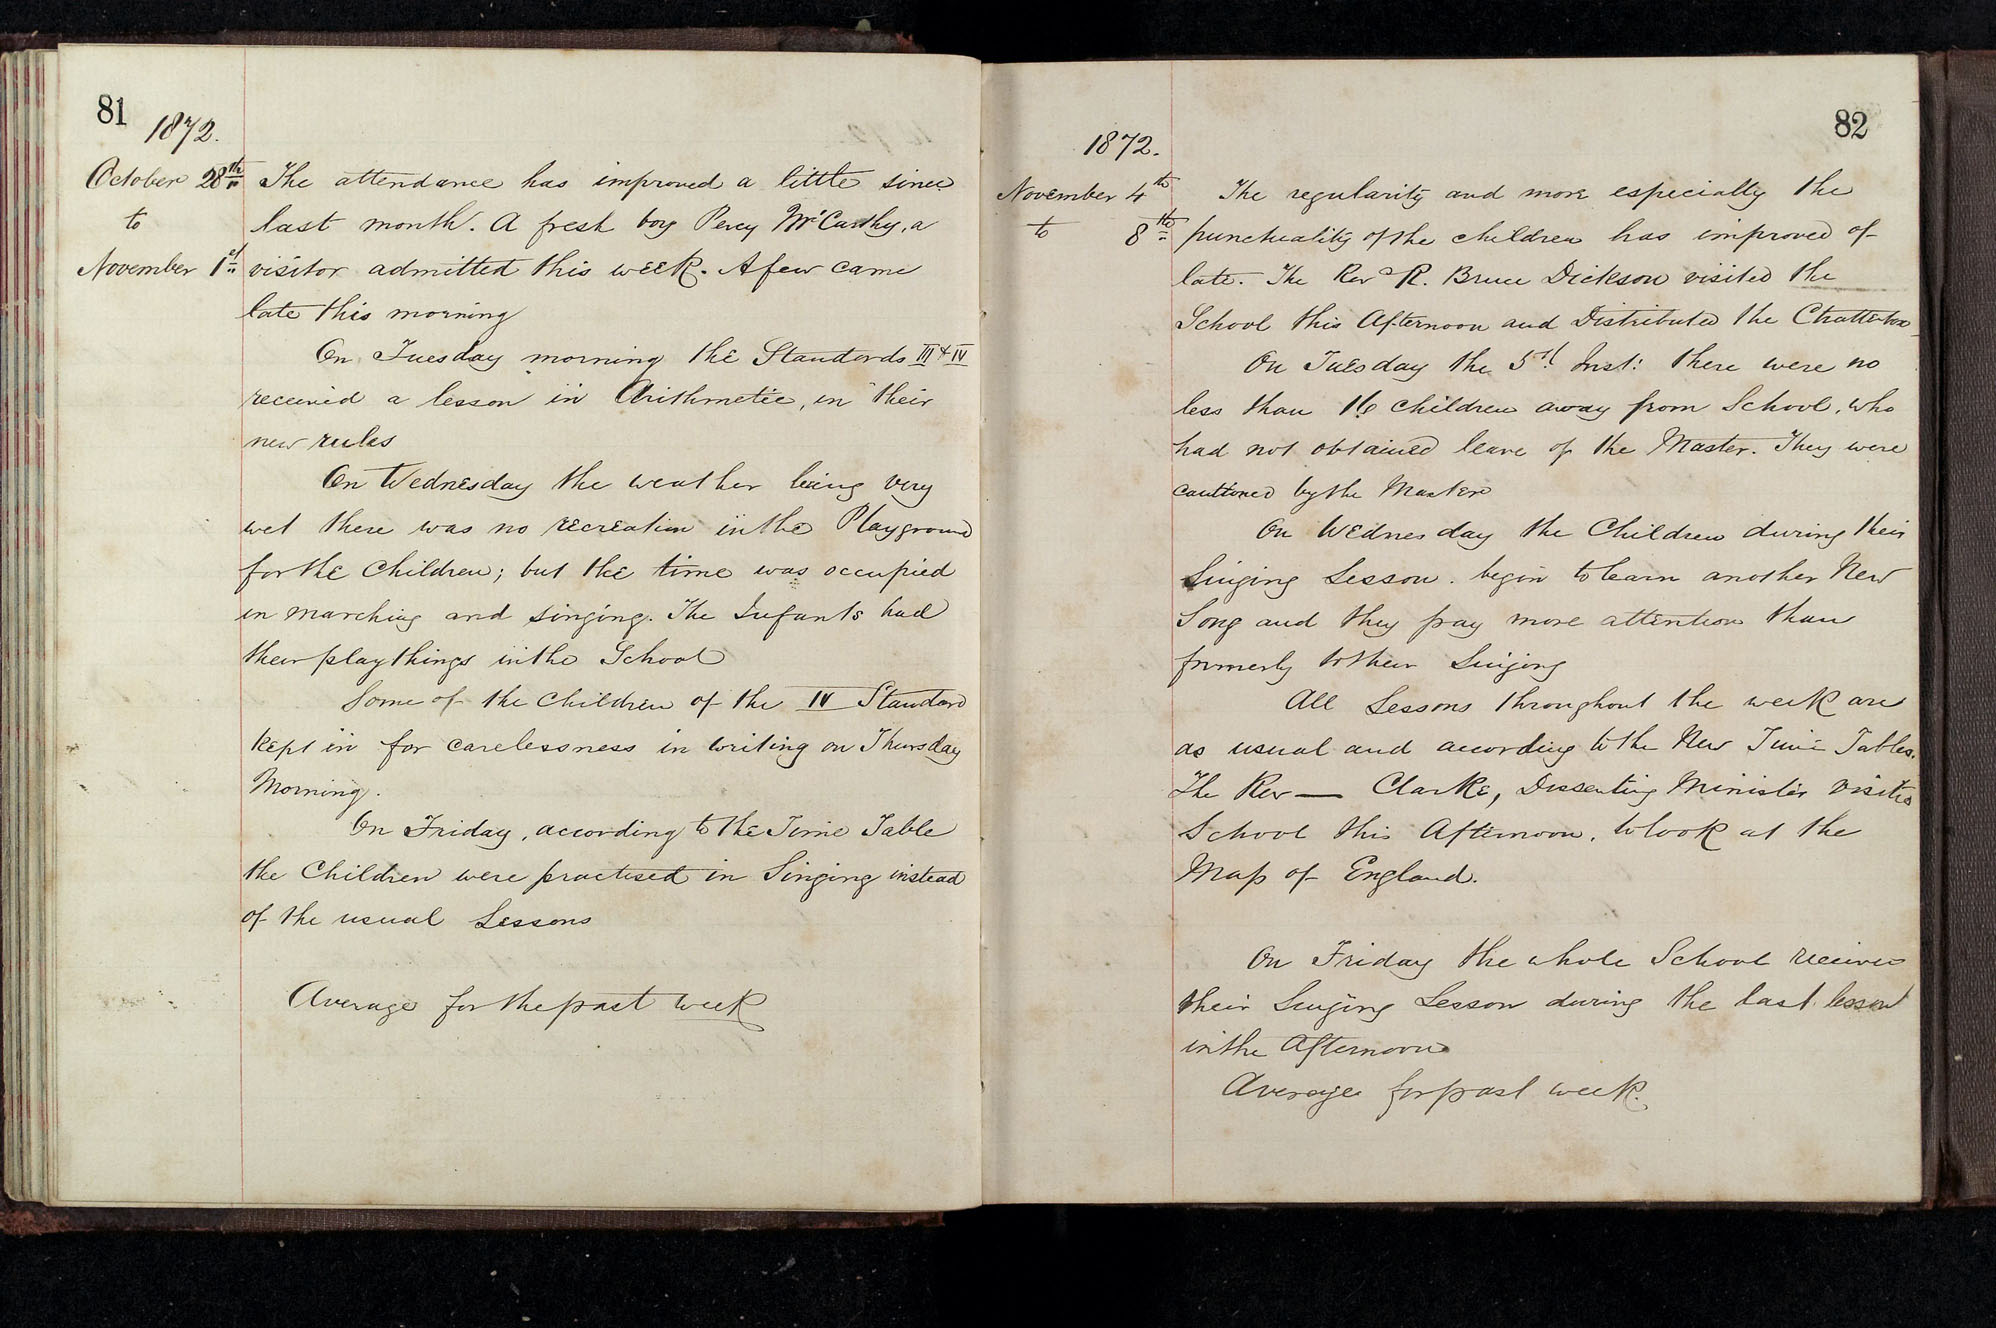 81
1872.
October 28th
to
November 1st
The attendance has improved a little since
last month. A fresh boy Percy McCarthy, a
visitor admitted this week. A few came
late this morning
On Tuesday morning the Standards III & IV
received a lesson in Arithmetic, in their
new rules
On Wednesday the weather being very
wet there was no recreation in the Playground
for the children; but the time was occupied
in marching and singing. The Infants had
their playthings in the School
Some of the children of the IV Standard
kept in for carelessness in writing on Thursday
Morning.
On Friday, according to the Time Table
the Children were practised in Singing instead
of the usual Lessons
Average for the past week
82
1872.
November 4th
to 8th
The regularity and more especially the
punctuality of the children has improved of
late. The Revd R. Bruce Dickson visited the
School this Afternoon and Distributed the Chatterbox
On Tuesday the 5th Inst: there were no
less than 16 children away from School, who
had not obtained leave of the Master. They were
cautioned by the Master
On Wednesday the Children during their
Singing Lesson. begin to learn another New
Song and they pay more attention than
formerly to their Singing
All Lessons throughout the week are
as usual and according to the New Time Tables.
The Rev — Clarke, Dissenting Minister visited
School this Afternoon, to look at the
Map of England.
On Friday the whole School receives
their Singing Lesson during the last lesson
in the Afternoon
Average for past week.